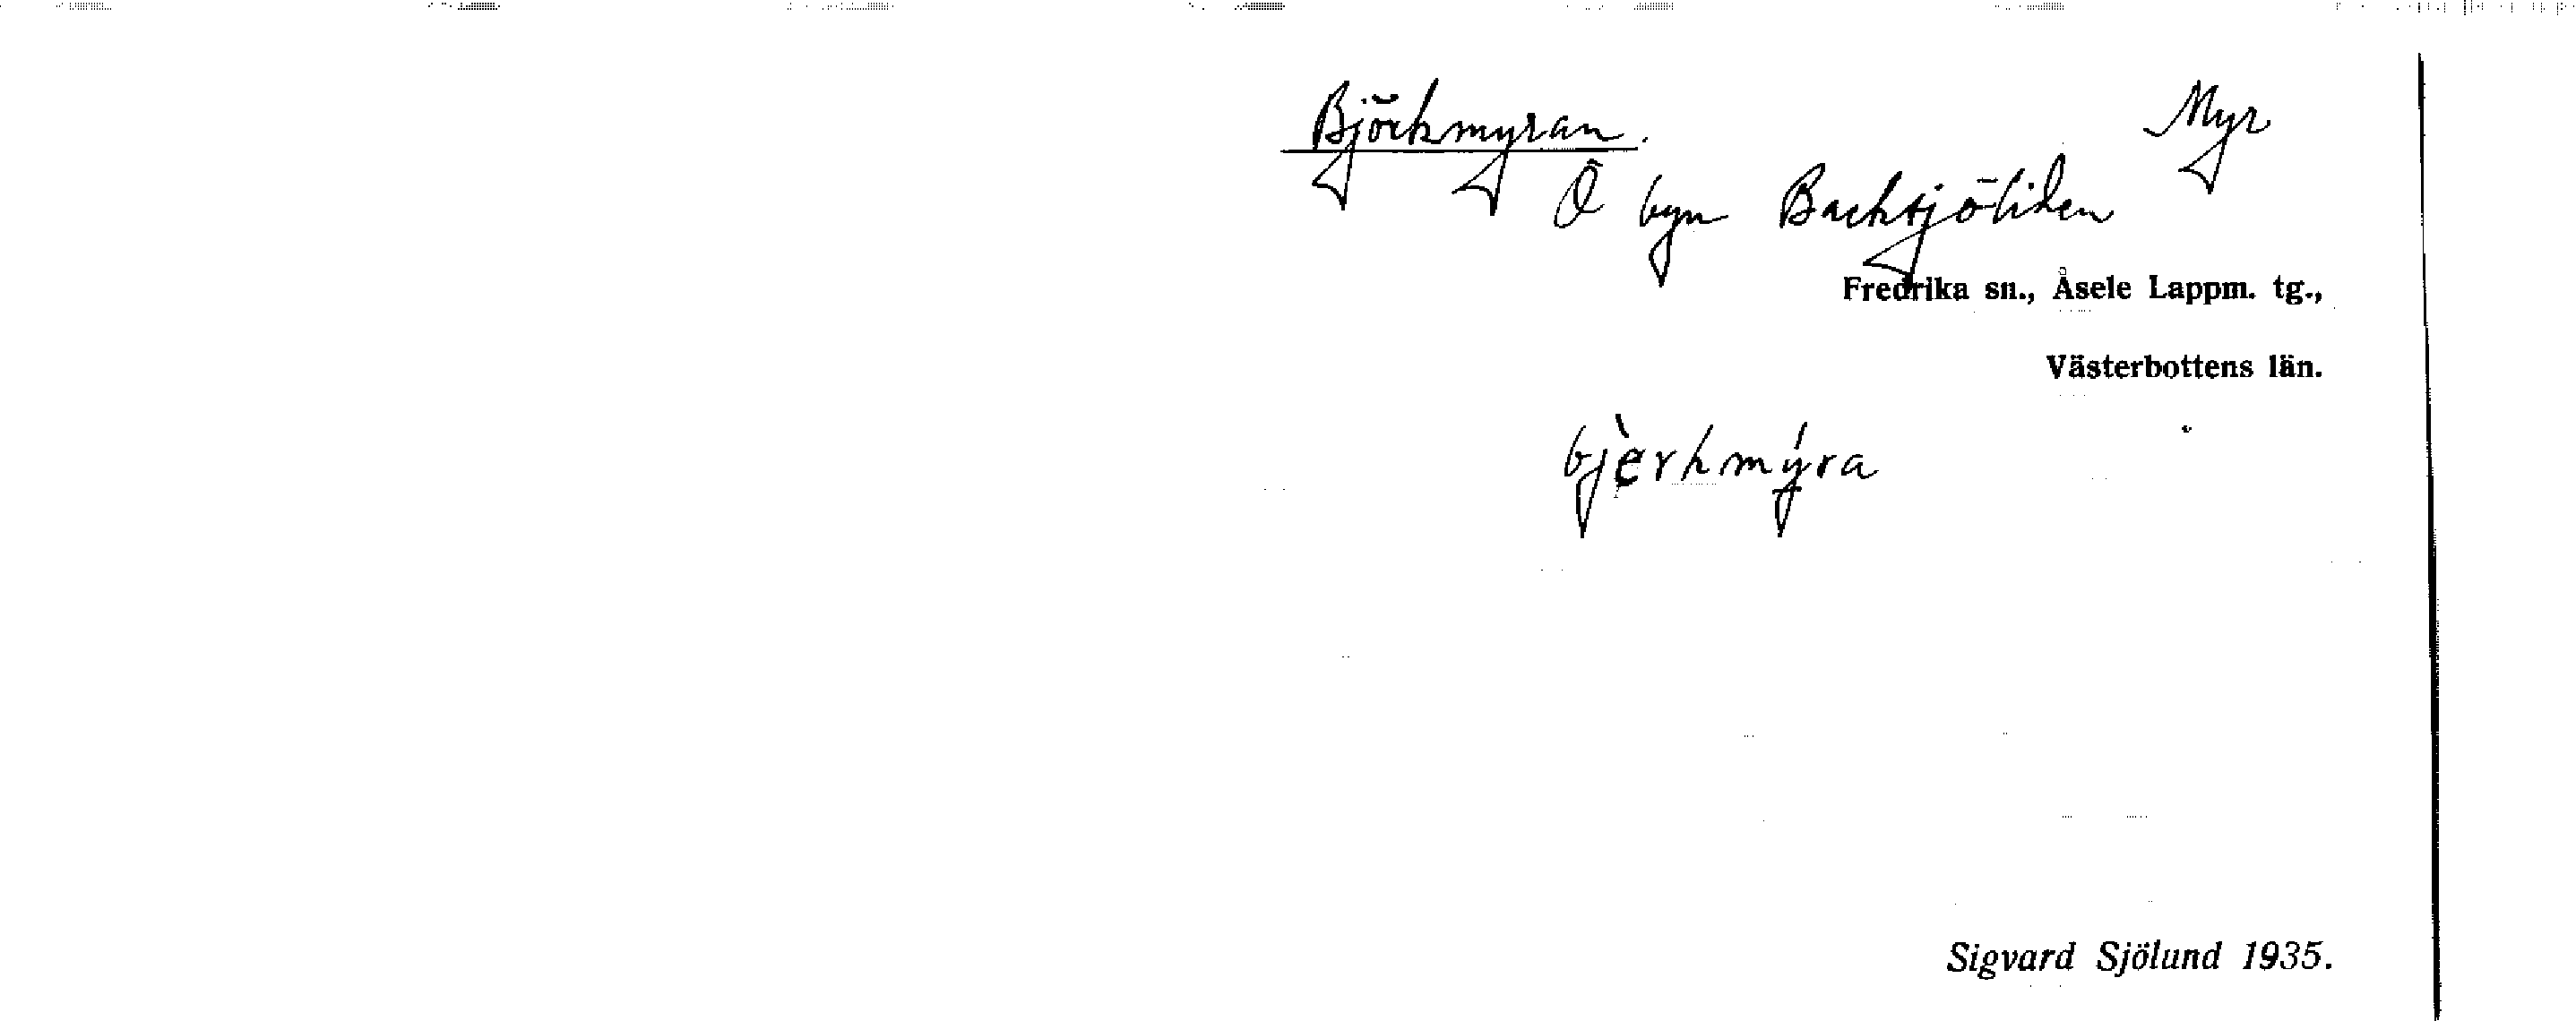 Björkmyran. Myr
Ö byn Backsjöliden
Fredrika sn., Åsele Lappm. tg.,
Västerbottens län.
bjèrkmýra
Sigvard Sjölund 1935.